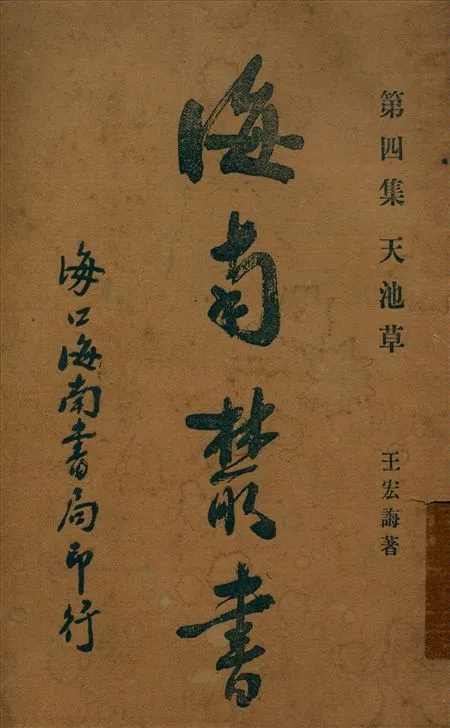 第四集 天池草
王宏誨著
海南叢書
海口海南書局印行